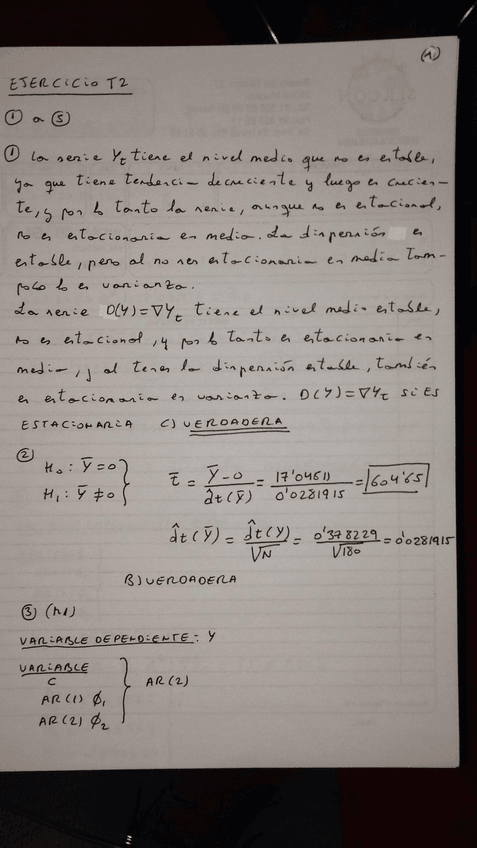 (1)
EJERCICIO T2
① a ⑤
① La serie Yt tiene el nivel medio que no es estable,
ya que tiene tendencia decreciente y luego es crecien-
te, y por lo tanto la serie, aunque no es estacional,
no es estacionaria en media. La dispersión es
estable, pero al no ser estacionaria en media tam-
poco lo es varianza.
La serie D(Y)=∇Yt tiene el nivel medio estable,
no es estacional, y por lo tanto es estacionaria en
media, y al tener la dispersión estable, también
es estacionaria en varianza. D(Y)=∇Yt SI ES
ESTACIONARIA C) VERDADERA
② H₀: Ȳ=0
H₁: Ȳ≠0
t̄ = (Ȳ-0)/d̂t(Ȳ) = 17'04611/0'0281915 = 604'65
d̂t(Ȳ) = d̂t(Y)/√N = 0'378229/√180 = 0'0281915
B) VERDADERA
③ (M1)
VARIABLE DEPENDIENTE: Y
VARIABLE
C
AR(1) ∅₁
AR(2) ∅₂
AR(2)